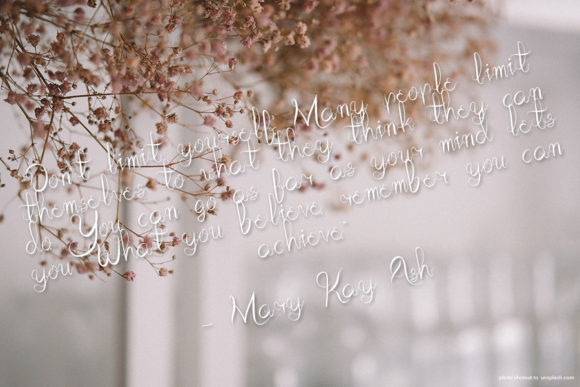 "Don't limit yourself. Many people limit
themselves to what they think they can
do. You can go as far as your mind lets
you. What you believe, remember, you can
achieve."
- Mary Kay Ash
photo to unsplash.com